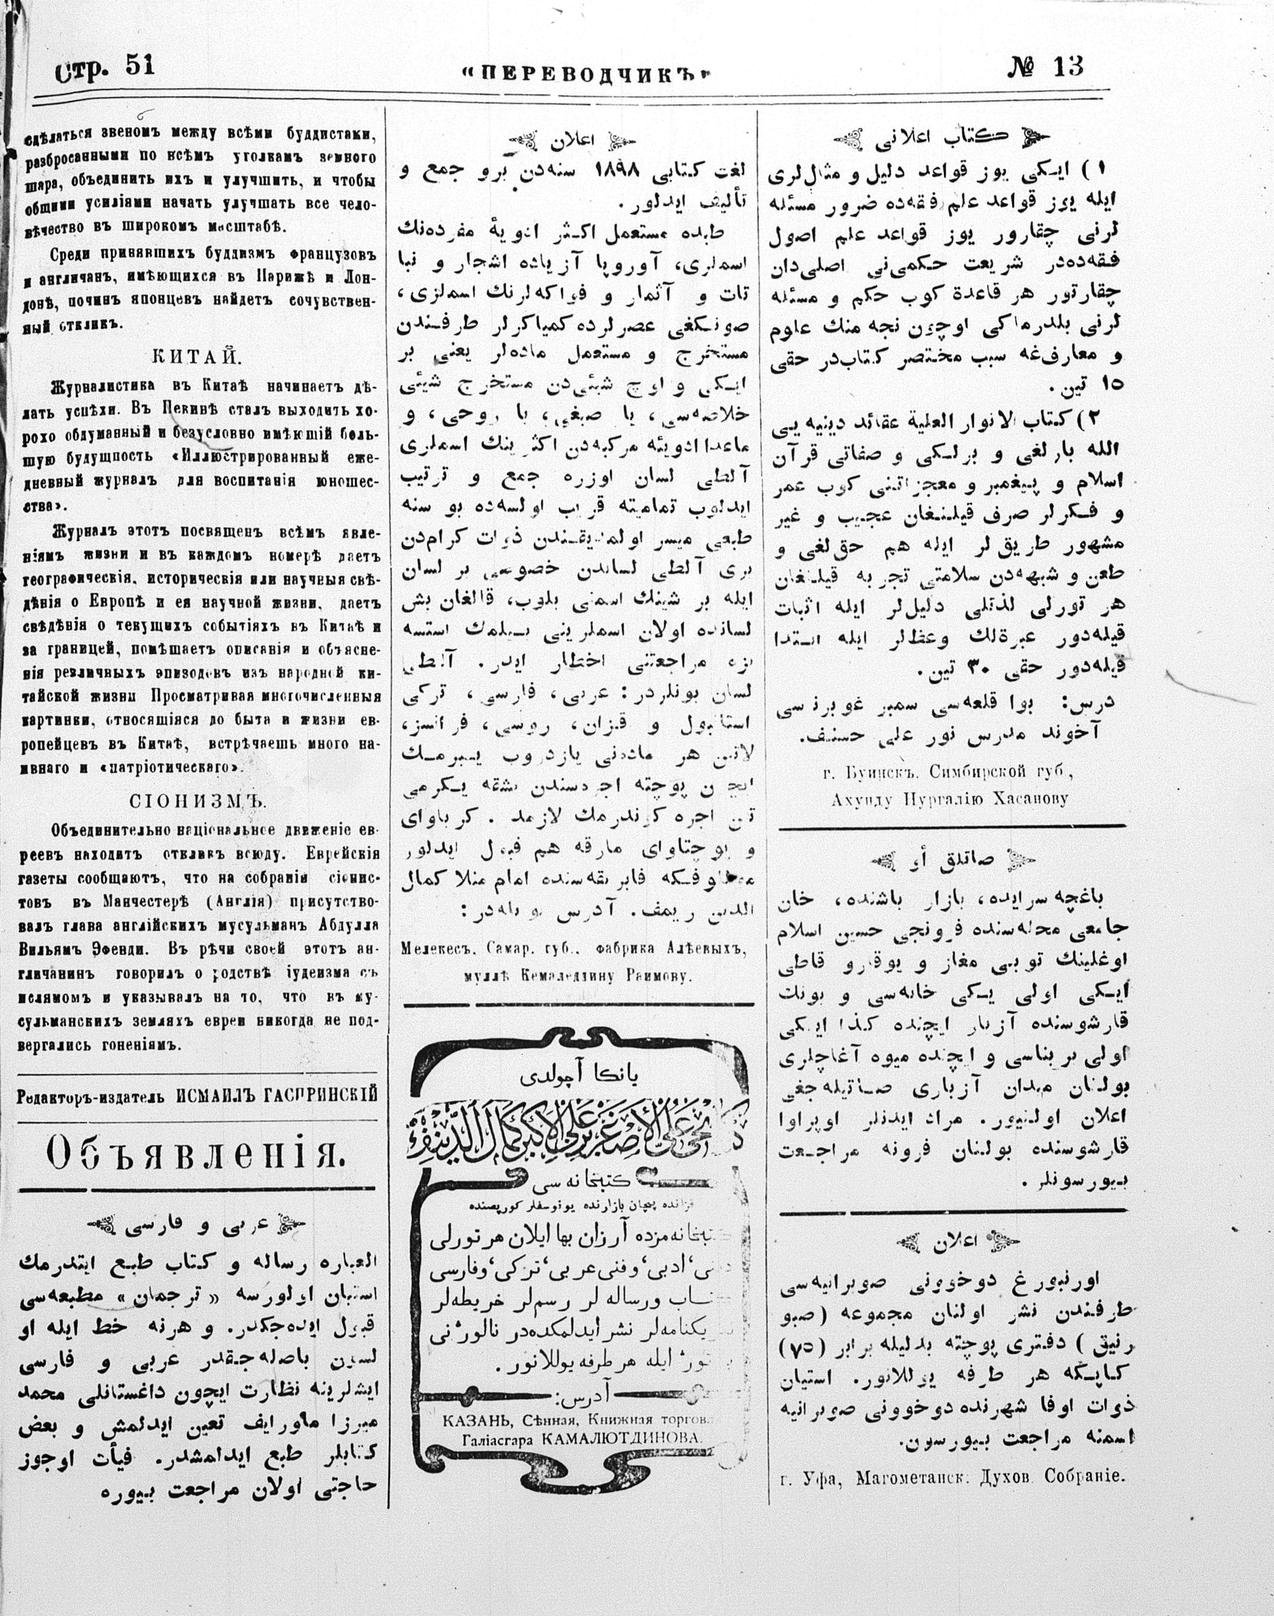 Стр. 51
«ПЕРЕВОДЧИКЪ»
№ 13
сдѣлаться звеномъ между всѣми буддистаки,
разбросанными по всѣмъ уголкамъ земного
шара, объединить ихъ и улучшить, и чтобы
общими усиліями начать улучшать все чело-
вѣчество въ широкомъ масштабѣ.
Среди принявшихъ буддизмъ французовъ
и англичан, имѣющихся въ Парижѣ и Лон-
донѣ, починъ японцевъ найдетъ сочувствен-
ный откликъ.
КИТАЙ.
Журналистика въ Китаѣ начинаетъ дѣ-
лать успѣхи. Въ Пекинѣ сталъ выходить хо-
рохо обдуманный и безусловно имѣющій боль-
шую будущность «Иллюстрированный еже-
дневный журналъ для воспитанія юношес-
ства».
Журналъ этотъ посвященъ всѣмъ явле-
ніямъ жизни и въ каждомъ номерѣ даетъ
географическія, историческія или научныя свѣ-
дѣнія о Европѣ и ея научной жизни, даетъ
свѣдѣнія о текущихъ событіяхъ въ Китаѣ и
за границей, помѣщаетъ описанія и объясне-
нія различныхъ эпизодовъ изъ народной ки-
тайской жизни Просматривая многочисленныя
картинки, относящіяся до быта и жизни ев-
ропейцевъ въ Китаѣ, встрѣчаешь много на-
ивнаго и «патріотическаго».
СІОНИЗМЪ.
Объединительно національное движеніе ев-
реевъ находитъ откликъ всюду. Еврейскія
газеты сообщаютъ, что на собраніи сіонис-
товъ въ Манчестерѣ (Англія) присутство-
валъ глава англійскихъ мусульманъ Абдулла
Вильямъ Эфенди. Въ рѣчи своей этотъ ан-
гличанинъ говорилъ о родствѣ іудеизма съ
исламомъ и указывалъ на то, что въ му-
сульманскихъ земляхъ евреи никогда не под-
вергались гоненіямъ.
Редакторъ-издатель ИСМАИЛЪ ГАСПРИНСКІЙ
Объявленія.
عربى و فارسى
العباره رساله و كتاب طبع ايتدرمك
استيان اولورسه «ترجمان» مطبعه‌سى
قبول ايده‌جكدر. و هرنه خط ايله او
لسون باصله‌جقدر عربى و فارسى
ايشلرينه نظارت ايچون داغستانلى محمد
ميرزا ماورايف تعين ايدلمش و بعض
كتابلر طبع ايدلمشدر. فيأت اوجوز
حاجتى اولان مراجعت بيوره
اعلان
لغت كتابى ١٨٩٨ سنه‌دن برو جمع و
تأليف ايدلور.
طبده مستعمل اكثر ادويۀ مفرده‌نك
اسملرى، آوروپا آزياده اشجار و نبا
تات و آثمار و فواكه‌لرنك اسملرى،
صونكغى عصرلرده كمياكرلر طرفندن
مستخرج و مستعمل ماده‌لر يعنى بر
ايكى و اوچ شيئى‌دن مستخرج شيئى
خلاصه‌سى، يا صبغى، يا روحى، و
ماعدا ادويئه مركبه‌دن اكثرينك اسملرى
آلطى لسان اوزره جمع و ترتيب
ايدلوب تماميته قريب اولسه‌ده بو سنه
طبعى ميسر اولمديغندن ذوات كرام‌دن
برى آلطى لساندن خصوصى بر لسان
ايله بر شيئنك اسمنى بلوب، قالغان بش
لسانده اولان اسملرينى بيلمك استسه
بزه مراجعتنى اخطار ايدر. آلطى
لسان بونلردر: عربى، فارسى، تركى
استانبول و قزان، روسى، فرانسز،
لاتين هر ماده‌نى يازدروب يبرمك
ايچون پوچته اجره‌سندن بشقه يكرمى
تين اجره كوندرمك لازمدر.
و پوچتاواى مارقه هم قبول ايدلور
فابريقه‌سنده امام منلا كمال
الدين رحيموف. آدرس بويله‌در:
Мелекесъ, Самар. губ., фабрика Алѣевыхъ,
муллѣ Кемаледдину Раимову.
يانكا آچولدى
كتبخانه‌سى
قزانده پچان بازارنده يونوسفلر كورپصنده
كتبخانه‌مزده آرزان بها ايلان هرتورلى
دينى، ادبى، و فنى عربى، تركى، و فارسى
كتاب و رساله لر رسم‌لر خريطه‌لر
نشر ايدلمكده‌در نالوژنى
ايله هر طرفه يوللانور.
آدرس:
КАЗАНЬ, Сѣнная, Книжная торговля
Галіасгара КАМАЛЮТДИНОВА.
كتاب اعلانى
١) ايكى يوز قواعد دليل و مثال‌لرى
ايله يوز قواعد علم فقه‌ده ضرور مسئله
لرنى چقارور يوز قواعد علم اصول
فقه‌ده‌در شريعت حكمى‌نى اصلى‌دان
چقارتور هر قاعدۀ كوب حكم و مسئله
لرنى بلدرماكى اوچون نجه منك علوم
و معارف‌غه سبب مختصر كتاب‌در حقى
١٥ تين.
٢) كتاب الانوار العلية عقائد دينيه يى
الله بارلغى و برلكى و صفاتى قرآن
اسلام و پيغمبر و معجزاتنى كوب عمر
و فكرلر صرف قيلنغان عجيب و غير
مشهور طريق‌لر ايله هم حق‌لغى و
طعن و شبهه‌دن سلامتى تجربه قيلنغان
هر تورلى لذتلى دليل‌لر ايله اثبات
قيله‌دور عبرة‌لك وعظ‌لر ايله ابتدا
قيله‌دور حقى ٣٠ تين.
درس: بوا قلعه‌سى سمبر غوبرنسى
آخوند مدرس نور على حسنف.
г. Буинскъ. Симбирской губ.,
Ахунду Нургалію Хасанову
صاتلق أو
باغچه سرايده، بازار باشنده، خان
جامعى محله‌سنده فرونجى حسين اسلام
اوغلينك توبى مغاز و يوقارو قاطى
ايكى اولى يكى خانه‌سى و بونك
قارشوسنده آزبار ايچنده كذا ايكى
اولى بر بناسى و ايچنده ميوه آغاچلرى
بولنان ميدان آزبارى صاتيله‌جغى
اعلان اولنيور. مراد ايدنلر اوپراوا
قارشوسنده بولنان فرونه مراجعت
بيورسونلر.
اعلان
اورنبورغ دوخوونى صوبرانيه‌سى
طرفندن نشر اولنان مجموعه (صبو
رنيق) دفترى پوچته بدليله برابر (٧٥)
كاپكه هر طرفه يوللانور. استيان
ذوات اوفا شهرنده دوخوونى صوبرانيه
اسمنه مراجعت بيورسون.
г. Уфа, Магометанск. Духов. Собраніе.